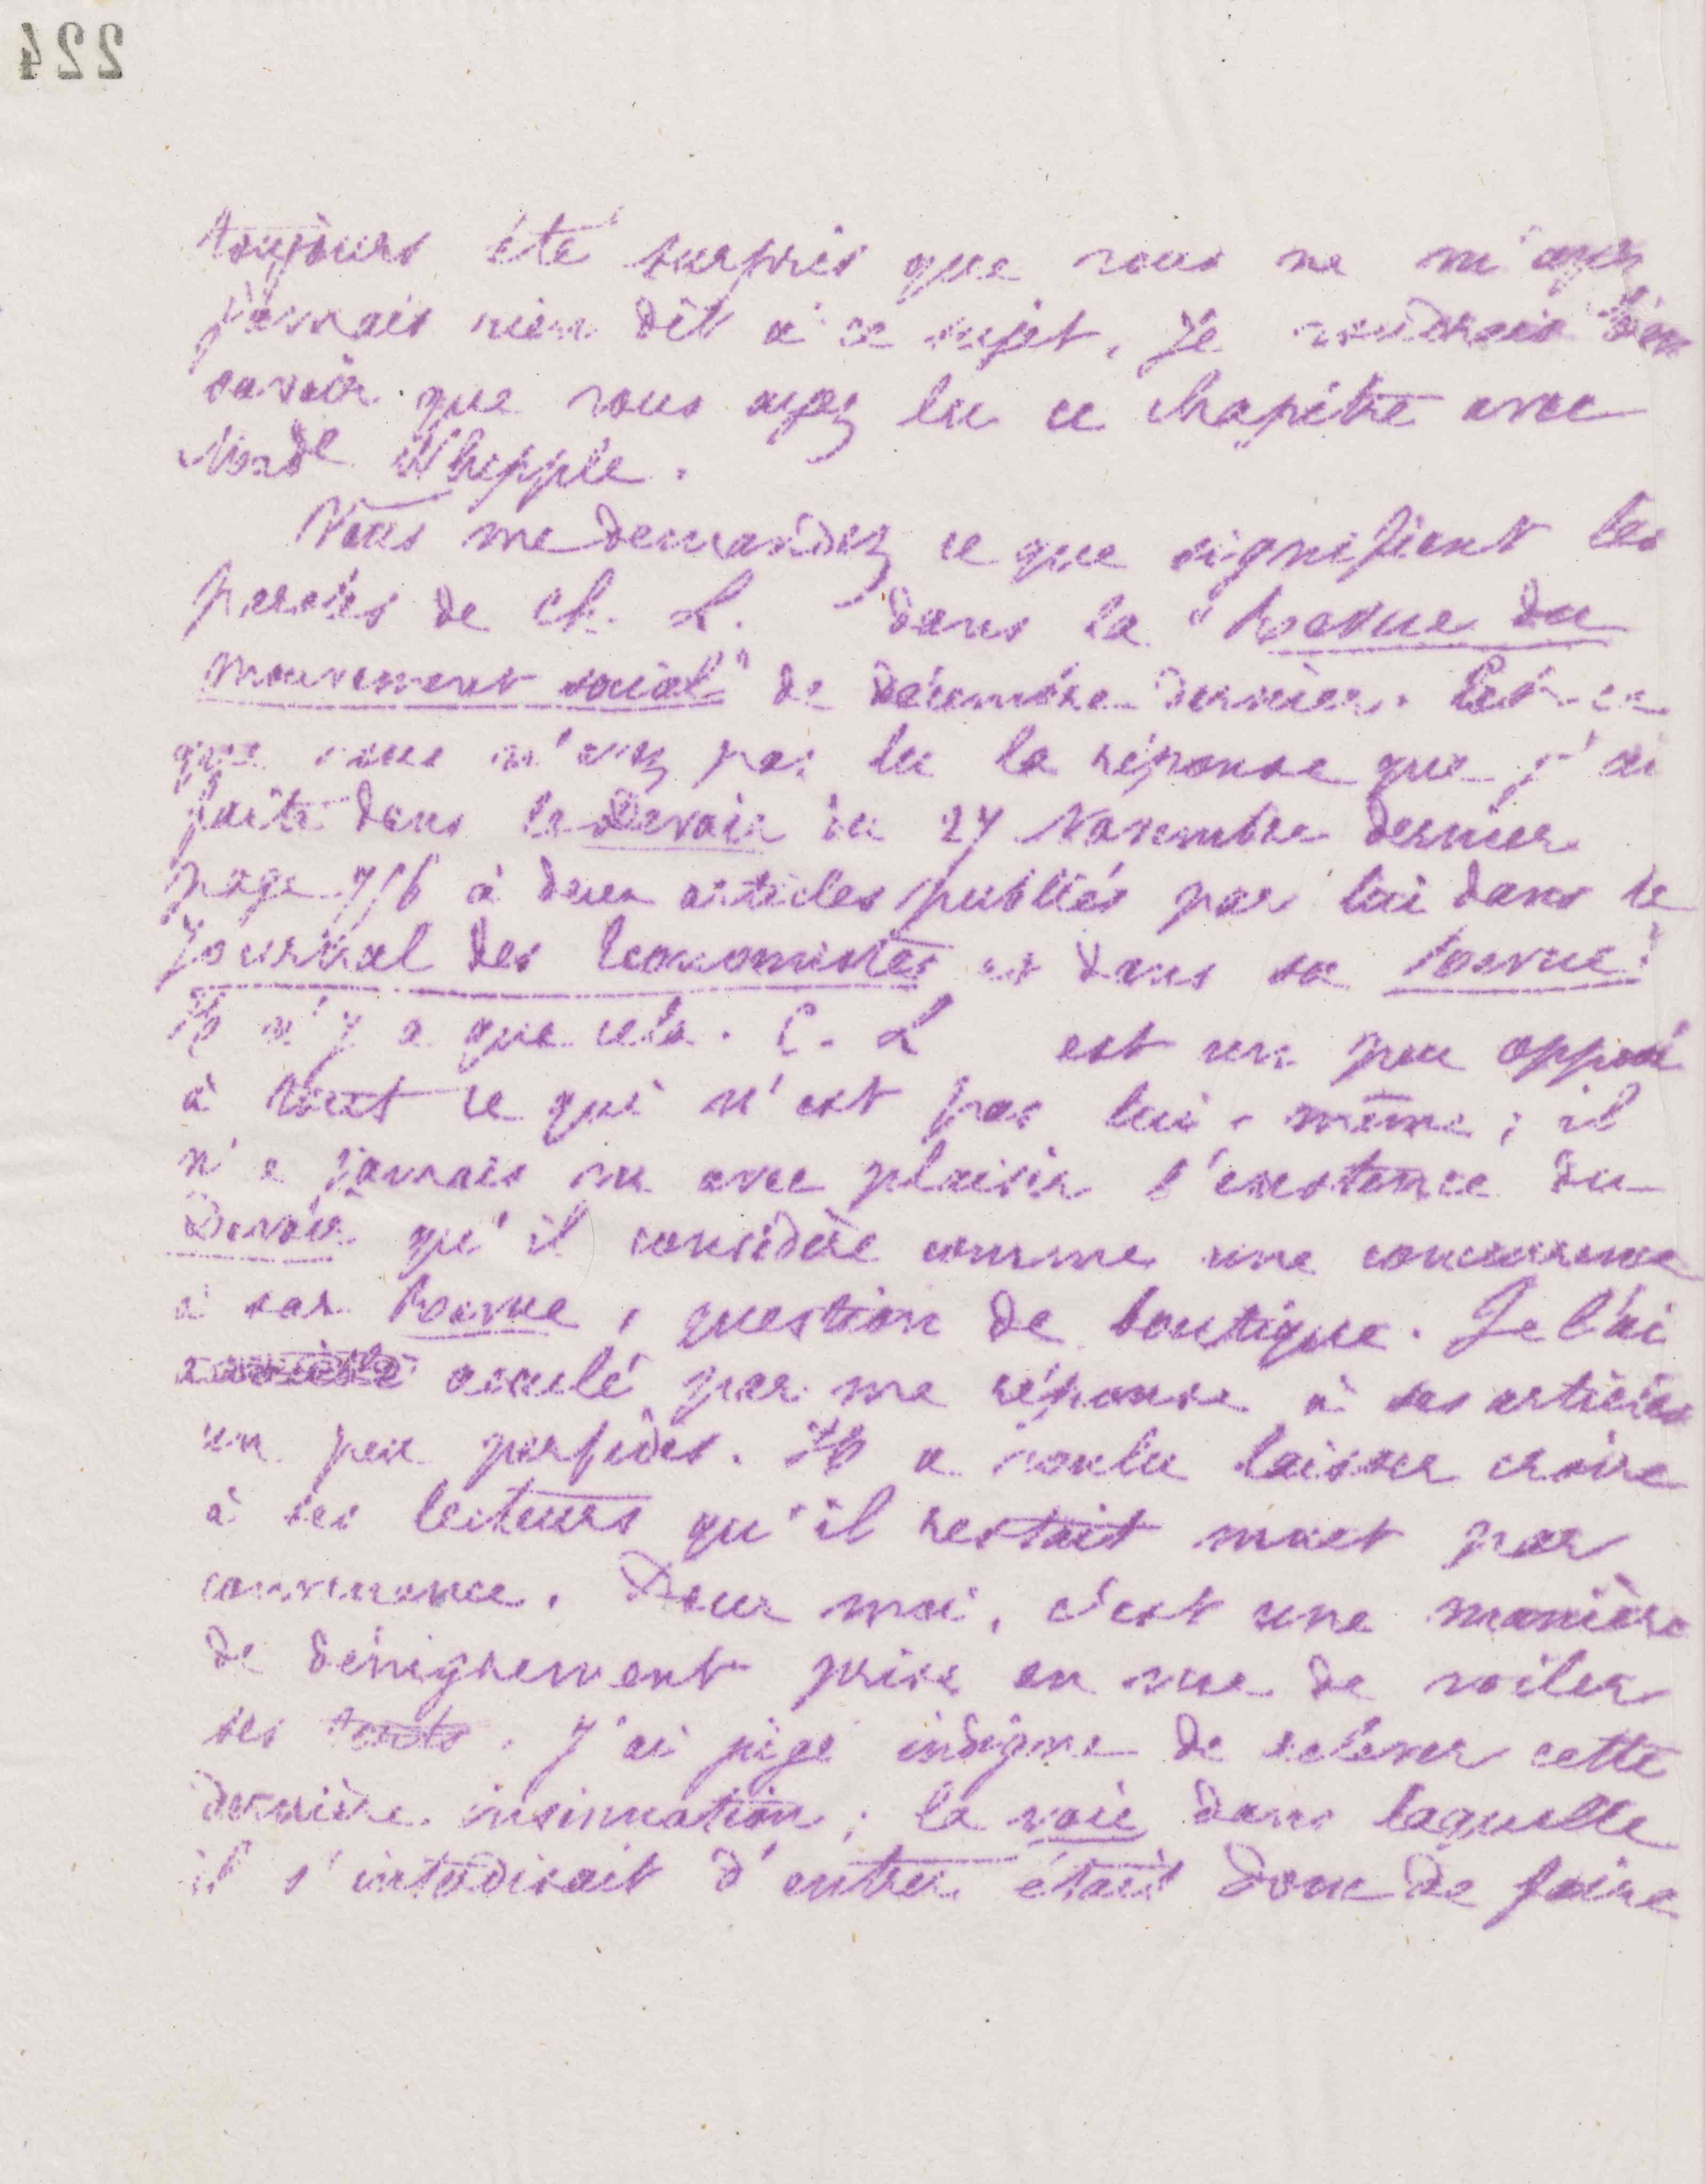 224
toujours été surpris que vous ne m'ayez
jamais rien dit à ce sujet. Je voudrais bien
savoir que vous ayez lu ce chapitre avec
Madl Whipple.
Vous me demandez ce que signifient les
paroles de Ch. L. dans la "Revue du
mouvement social" de décembre dernier. Est-ce
que vous n'avez pas lu la réponse que j'ai
faite dans le Devoir du 27 Novembre dernier
page 756 à deux articles publiés par lui dans le
Journal des Economistes et dans sa Revue?
Il n'y a que cela. C. L est un peu opposé
à tout ce qui n'est pas lui-même; il
n'a jamais vu avec plaisir l'existence du
Devoir qu'il considère comme une concurrence
à sa Revue, question de boutique. Je l'ai
acculé par ma réponse à ses articles
un peu perfides. Il a voulu laisser croire
à ses lecteurs qu'il restait muet par
convenance. Pour moi, c'est une manière
de dénigrement prise en vue de voiler
ses torts. J'ai jugé indigne de relever cette
dernière insinuation; la voie dans laquelle
il s'interdisait d'entrer était donc de faire